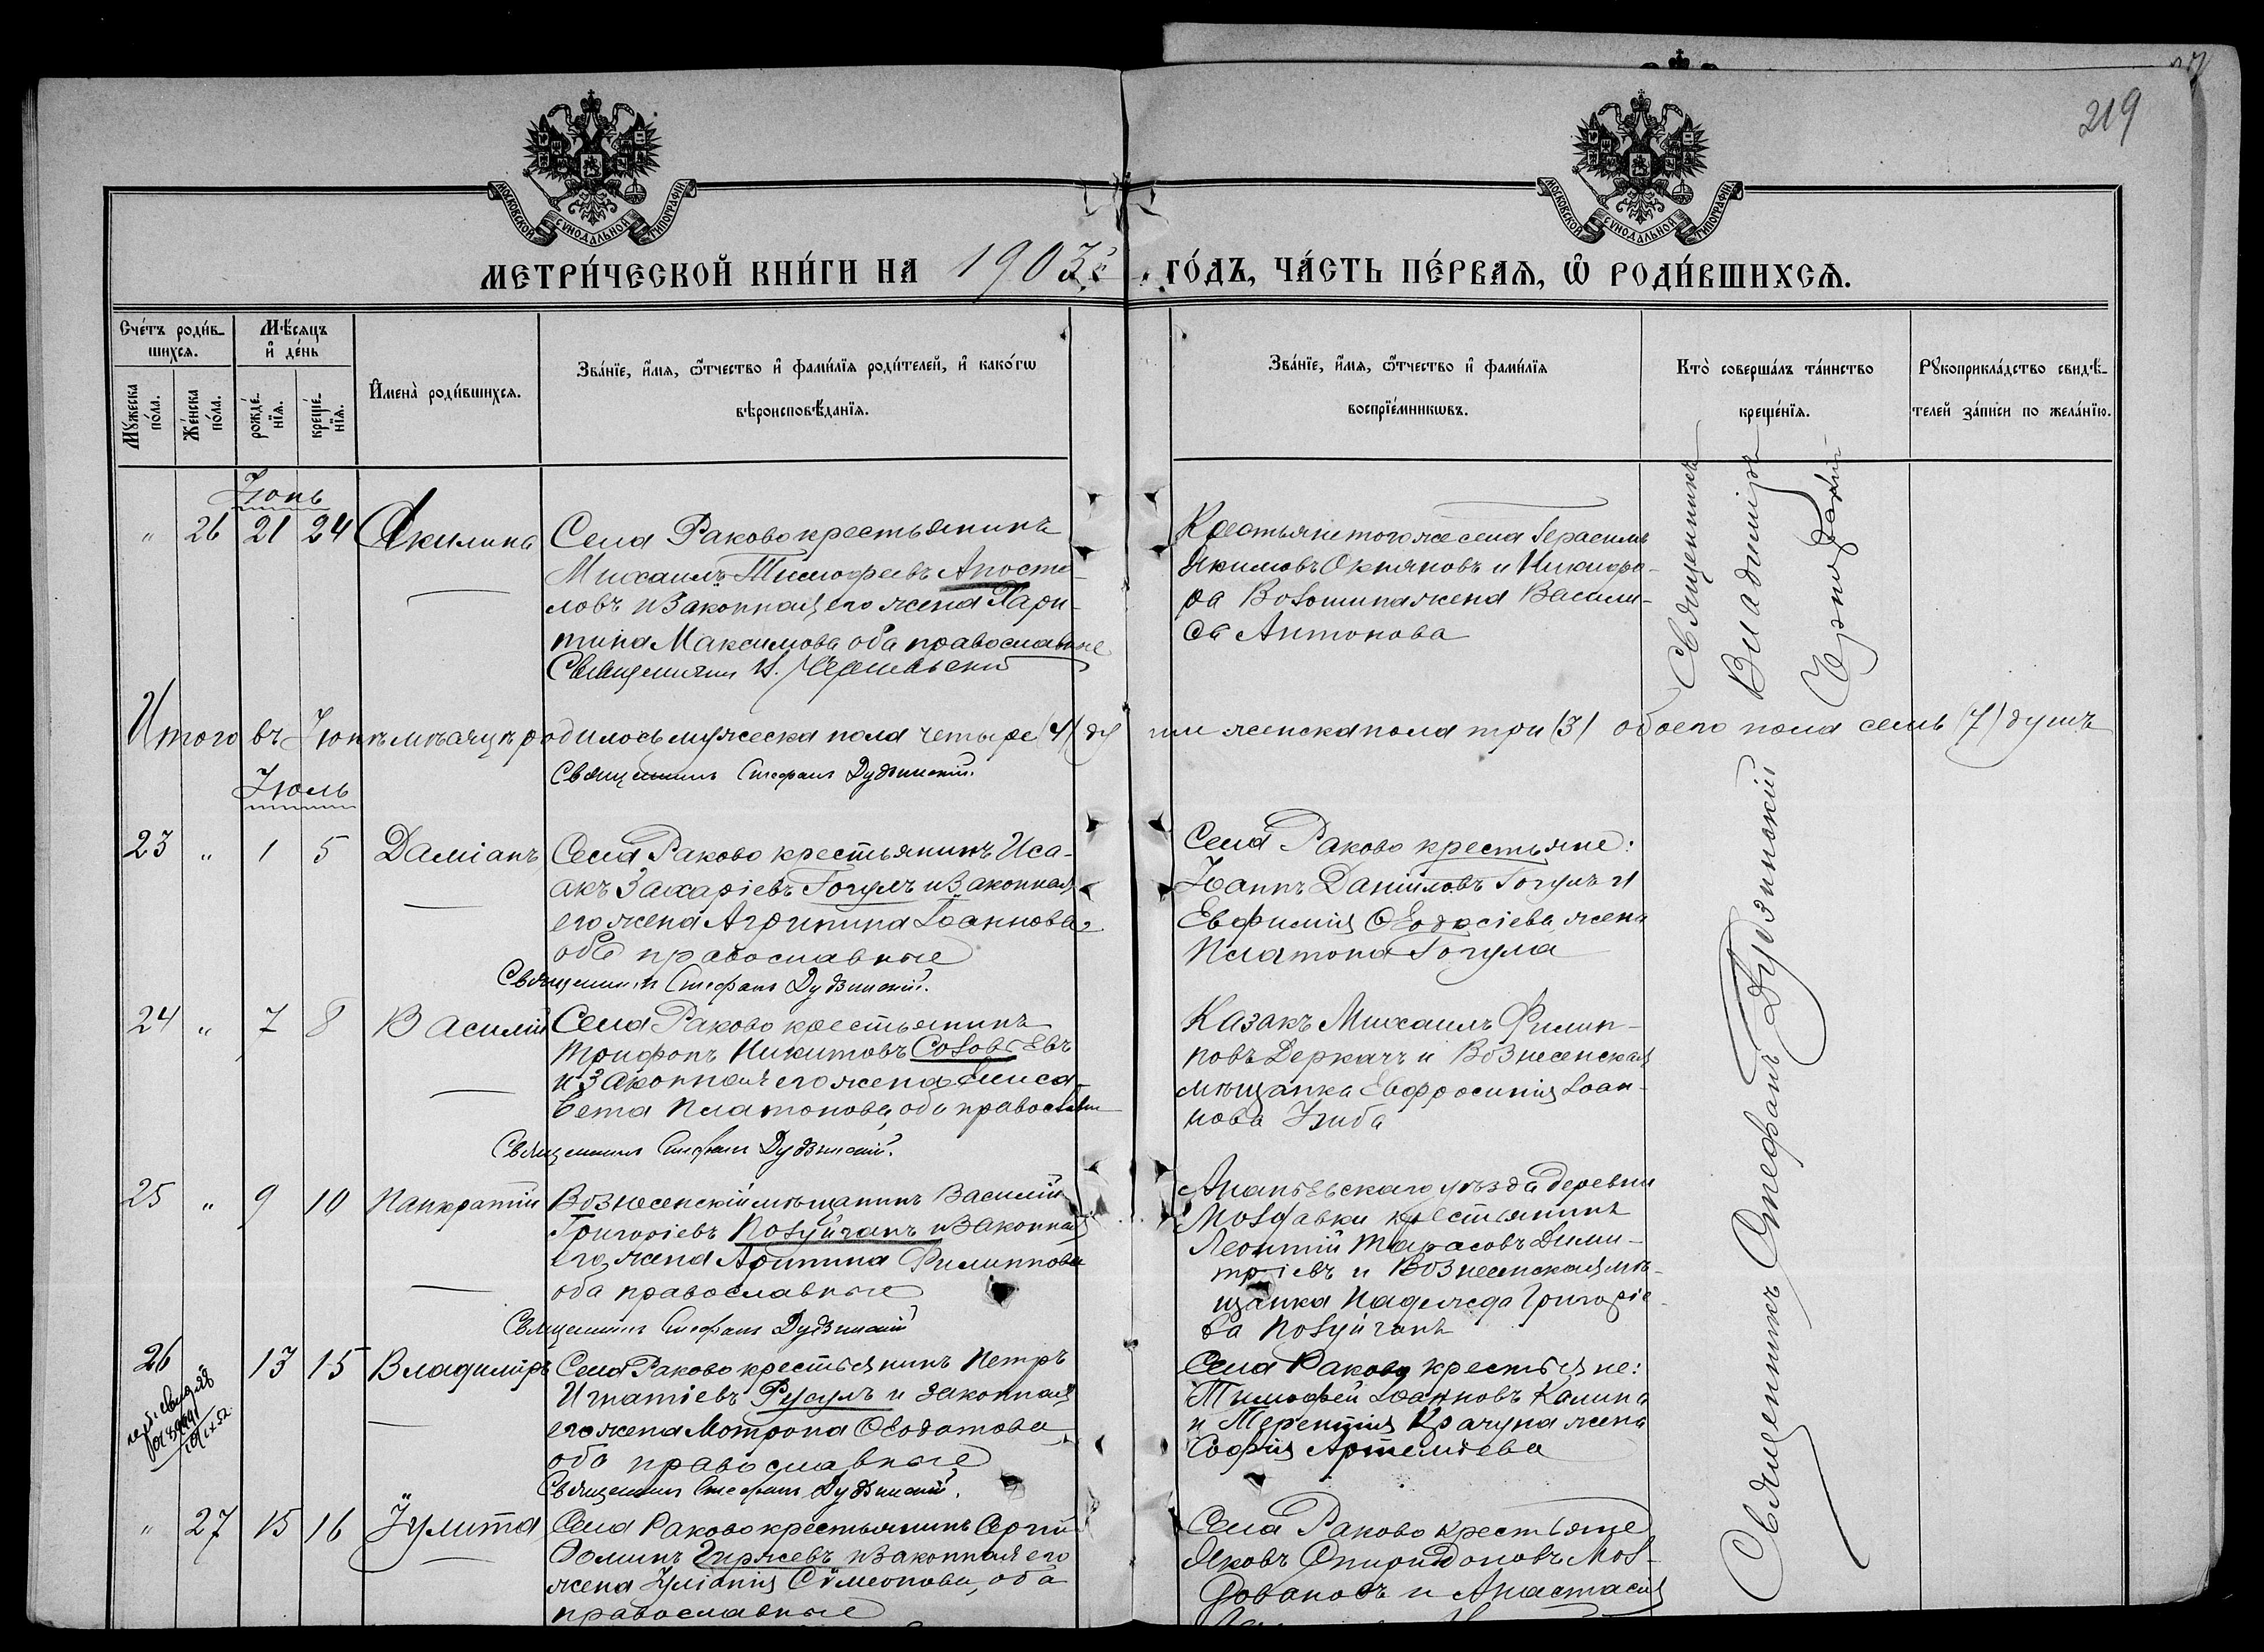 219
МОСКОВСКОЙ СѴНОДАЛЬНОЙ ТИПОГРАФІИ
МОСКОВСКОЙ СѴНОДАЛЬНОЙ ТИПОГРАФІИ
МЕТРИ́ЧЕСКОЙ КНИ́ГИ НА 1903й ГО́ДЪ, ЧА́СТЬ ПЕ́РВАѦ, Ѡ҆ РОДИ́ВШИХСѦ.
Сче́тъ роди́в-
шихсѧ.
Мѣ́сѧцъ
и҆ де́нь
Мꙋ́жеска по́ла.
Же́нска по́ла.
рожде́-
нїѧ.
креще́-
нїѧ.
И҆мена̀ роди́вшихсѧ.
Зва́нїе, и҆́мѧ, ѻ҆́тчество и҆ фами́лїѧ роди́телей, и҆ како́гѡ
вѣроисповѣ́данїѧ.
Зва́нїе, и҆́мѧ, ѻ҆́тчество и҆ фами́лїѧ
воспрїе́мникѡвъ.
Кто̀ соверша́лъ та́инство
креще́нїѧ.
Рꙋкоприкла́дство свидѣ́-
телей за́писи по жела́нїю.
Іюнь
" 26 21 24 Акилина
Села Раково крестьянинъ
Михаилъ Тимофеевъ Апосто-
ловъ и законная его жена Хари-
тина Максимова оба православные
Священникъ В.
Крестьяне того же села Герасимъ
Якимовъ и Никифо-
ра жена Васили-
са Антонова
Священникъ
Владимиръ
Итого въ Іюнѣ мѣсяцѣ родилось мужеска пола четыре (4) ду
ши женска пола три (3) обоего пола семь (7) душъ
Священникъ Стефанъ Дудзинскій.
Іюль
23 " 1 5 Даміанъ
Села Раково крестьянинъ Иса-
акъ Захаріевъ Гогулъ и законная
его жена Агрипина Іоаннова,
оба православные
Священникъ Стефанъ Дудзинскій.
Села Раково крестьяне:
Іоаннъ Даніиловъ Гогулъ и
Евфимія Ѳеодосіева жена
Платона Гогула
24 " 7 8 Василій
Села Раково крестьянинъ
Трифонъ Никитовъ Соловьевъ
и законная его жена Елиса-
вета Платонова, оба православные
Священникъ Стефанъ Дудзинскій.
Казакъ Михаилъ Филип-
повъ Деркачъ и Вознесенская
мѣщанка Евфросинія Іоан-
нова
25 " 9 10 Панкратій
Вознесенскій мѣщанинъ Василій
Григоріевъ и законная
его жена Агрипина Филиппова
оба православные
Священникъ Стефанъ Дудзинскій
Ананьевскаго уѣзда деревни
крестьянинъ
Леонтій Тарасовъ Дими-
тріевъ и Вознесенская мѣ-
щанка Надежда Григоріе-
ва
26 13 15 Владиміръ
Села Раково крестьянинъ Петръ
Игнатіевъ Русулъ и законная
его жена Мотрона Ѳеодотова,
оба православные
Священникъ Стефанъ Дудзинскій.
Села Раково крестьяне:
Тимофей Іоанновъ Калина
и Терентія Крачуна жена
Софія Артеміева
" 27 15 16 Іулита
Села Раково крестьянинъ Сергій
Ѳоминъ и законная его
жена Іуліанія Сѵмеонова, оба
православные
Села Раково крестьяне
Яковъ Спиридоновъ Мол-
довановъ и Анастасія
Священникъ Стефанъ Дудзинскій